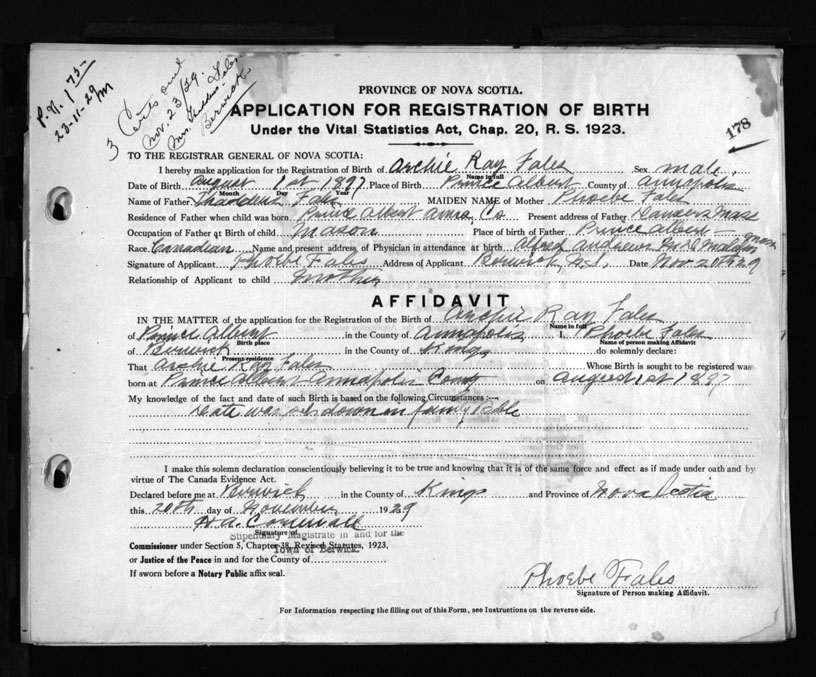 P.N. 1 75
23-11-29 M
3 Certs out
Nov. 23/29.
Mrs. Fales
Berwick
178
PROVINCE OF NOVA SCOTIA.
APPLICATION FOR REGISTRATION OF BIRTH
Under the Vital Statistics Act, Chap. 20, R. S. 1923.
TO THE REGISTRAR GENERAL OF NOVA SCOTIA:
I hereby make application for the Registration of Birth of Archie Ray Fales Sex male.
Name in full
Date of Birth August 1st 1897 Place of Birth Prince Albert County of Annapolis
Month Day Year
Name of Father Thaddeus Fales MAIDEN NAME of Mother Phoebe Fales
Residence of Father when child was born Prince Albert Co Present address of Father Danvers Mass
Occupation of Father at Birth of child Mason Place of birth of Father Prince Albert
Race Canadian Name and present address of Physician in attendance at birth Alfred Andrews Malden Mass
Signature of Applicant Phoebe Fales Address of Applicant Berwick N.S. Date Nov 20th 29
Relationship of Applicant to child Mother
AFFIDAVIT
IN THE MATTER of the application for the Registration of the Birth of Archie Ray Fales
Name in full
of Prince Albert in the County of Annapolis I, Phoebe Fales
Birth place Name of person making Affidavit
of Berwick in the County of Kings do solemnly declare:
Present residence
That Archie Ray Fales Whose Birth is sought to be registered was
born at Prince Albert Annapolis County on August 1st 1897
My knowledge of the fact and date of such Birth is based on the following Circumstances:
Date was set down in family Bible
I make this solemn declaration conscientiously believing it to be true and knowing that it is of the same force and effect as if made under oath and by
virtue of The Canada Evidence Act.
Declared before me at Berwick in the County of Kings and Province of Nova Scotia
this 20th day of November 1929
H.A. Cornwall
Signature of
Stipendiary Magistrate in and for the
Commissioner under Section 5, Chapter 38, Revised Statutes, 1923,
Town of Berwick.
or Justice of the Peace in and for the County of
If sworn before a Notary Public affix seal.
Phoebe Fales
Signature of Person making Affidavit.
For Information respecting the filling out of this Form, see Instructions on the reverse side.